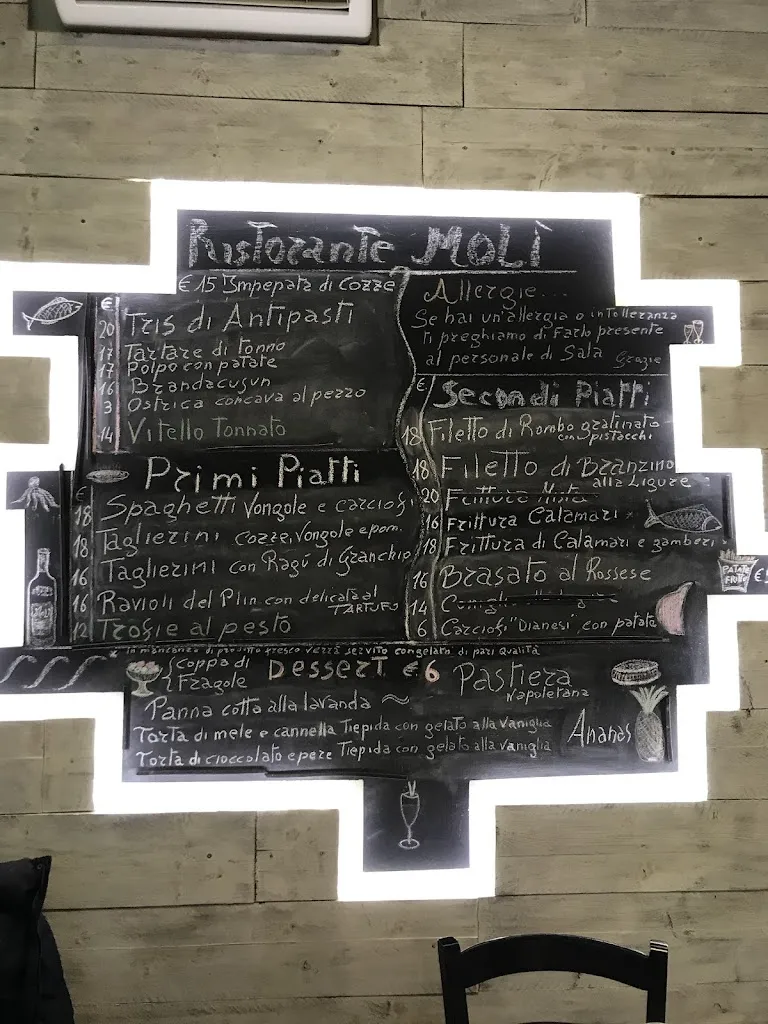 Ristorante MOLÌ
€ 15 Impepata di Cozze
€
20 Tris di Antipasti
17 Tartare di tonno
17 Polpo con patate
16 Brandacujun
3 Ostrica concava al pezzo
14 Vitello Tonnato
Allergie...
Se hai un'allergia o intolleranza
ti preghiamo di farlo presente
al personale di Sala Grazie
€ Primi Piatti
18 Spaghetti Vongole e carciofi
18 Taglierini cozze, Vongole e pom.
16 Taglierini con Ragú di Granchio
16 Ravioli del Plin con delicata al
TARTUFO
12 Trofie al pesto
€ Secondi Piatti
18 Filetto di Rombo gratinato
con pistacchi
18 Filetto di Branzino
alla Ligure
20 Frittura Mista
16 Frittura Calamari
18 Frittura di Calamari e gamberi
16 Brasato al Rossese
14 Coniglio
6 Carciofi "Dianesi", con patate
PATATE
FRITTE €
* In mancanza di prodotto fresco verrà servito congelato di pari qualità
Coppa di
Fragole
Dessert € 6
Pastiera
Napoletana
Panna cotta alla lavanda
Torta di mele e cannella Tiepida con gelato alla vaniglia
Torta di cioccolato e pere Tiepida con gelato alla vaniglia
Ananas